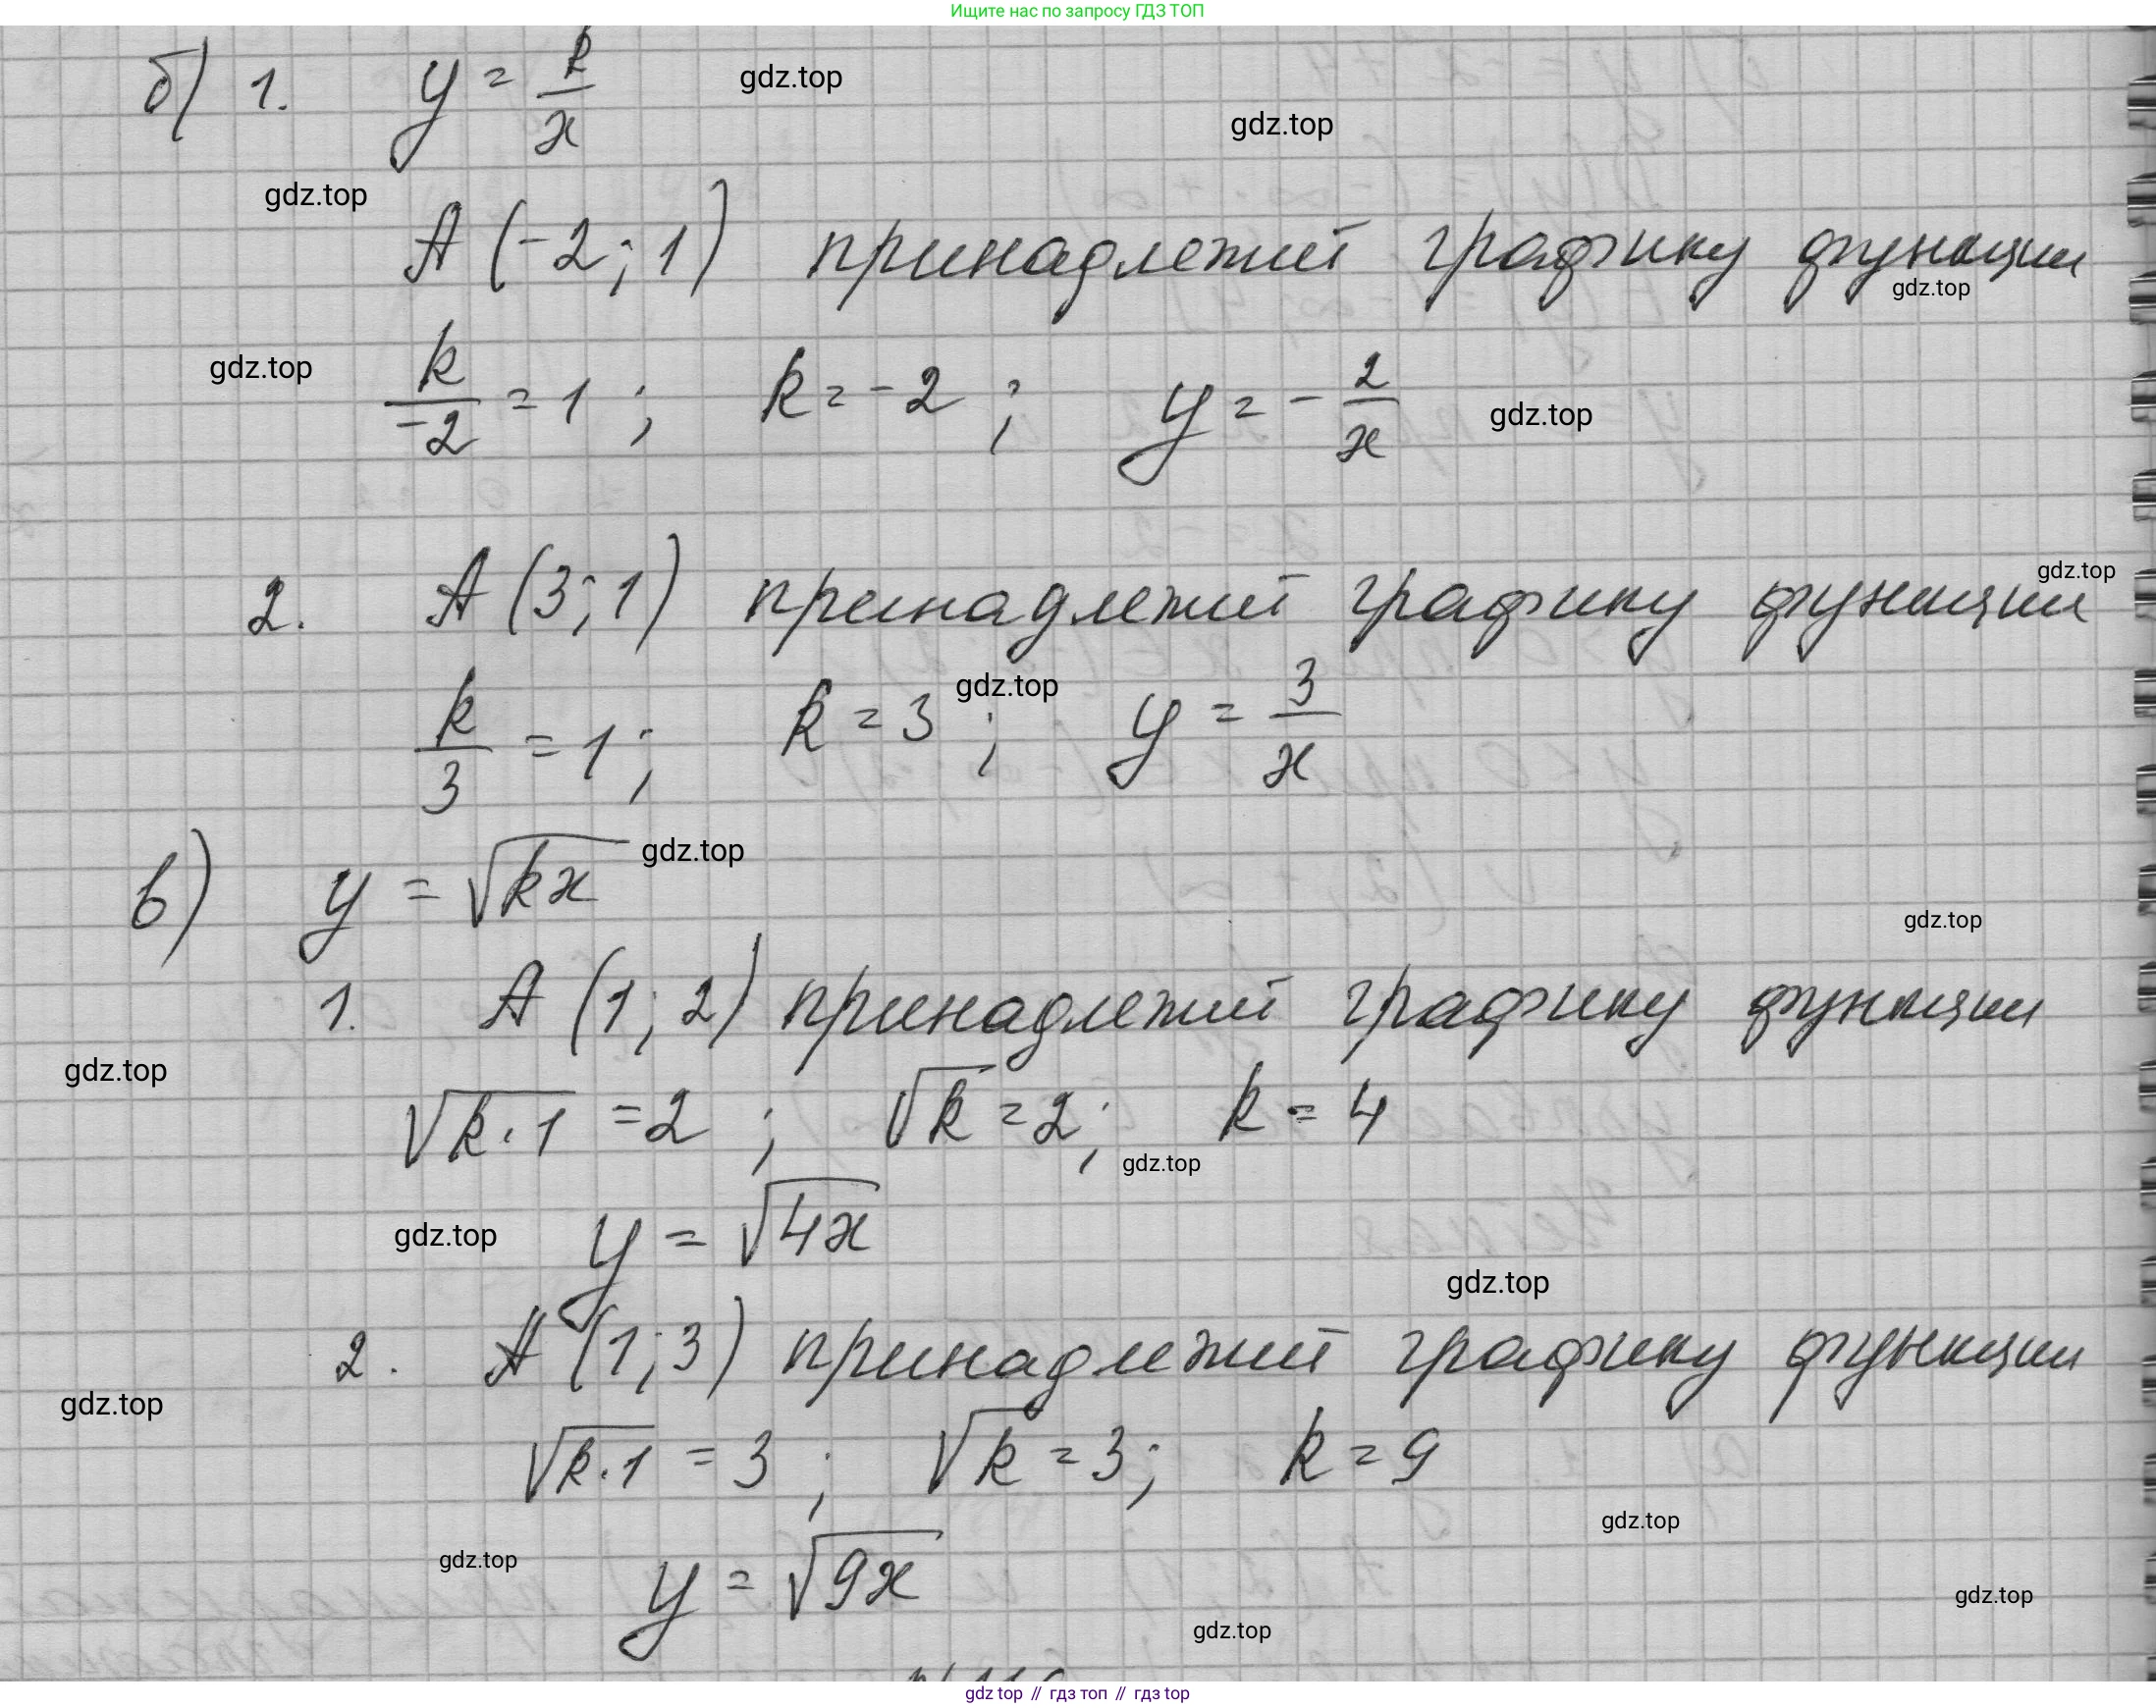 Ищите нас по запросу ГДЗ ТОП
б) 1. y = k/x
gdz.top
gdz.top
gdz.top
A (-2; 1) принадлежит графику функции
gdz.top
gdz.top
k/-2 = 1; k = -2; y = - 2/x
gdz.top
gdz.top
2. A (3; 1) принадлежит графику функции
gdz.top
k/3 = 1; k = 3; y = 3/x
в) y = √kx
gdz.top
gdz.top
1. A (1; 2) принадлежит графику функции
gdz.top
√k·1 = 2; √k = 2; k = 4
gdz.top
gdz.top
y = √4x
gdz.top
2. A (1; 3) принадлежит графику функции
gdz.top
√k·1 = 3; √k = 3; k = 9
gdz.top
gdz.top
y = √9x
gdz.top
gdz.top
gdz top // гдз топ // gdz top